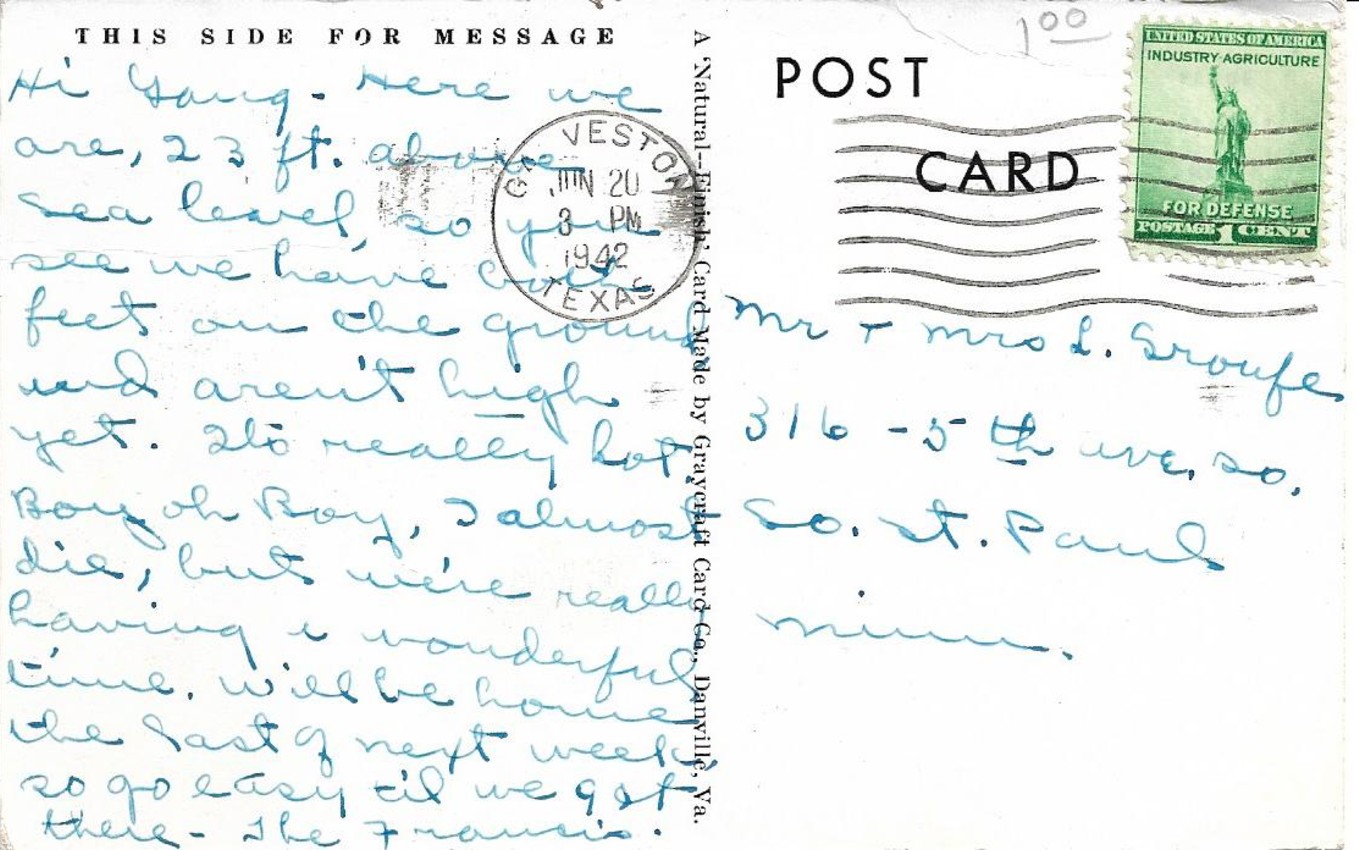 THIS SIDE FOR MESSAGE
Hi Gang - Here we
are, 23 ft. above
sea level, so you
see we have both
feet on the ground
and aren't high
yet. Its really hot.
Boy oh Boy, I almost
die, but we're really
having a wonderful
time. Will be home
the last of next week,
so go easy til we get
there - The Francis.
A 'Natural--Finish' Card Made by Graycraft Card Co., Danville, Va.
GALVESTON
JUN 20
3 PM
1942
TEXAS
1 00
POST
CARD
UNITED STATES OF AMERICA
INDUSTRY AGRICULTURE
FOR DEFENSE
POSTAGE 1 CENT
Mr + Mrs L. Groufe
316 - 5th ave. So.
So. St. Paul
Minn.